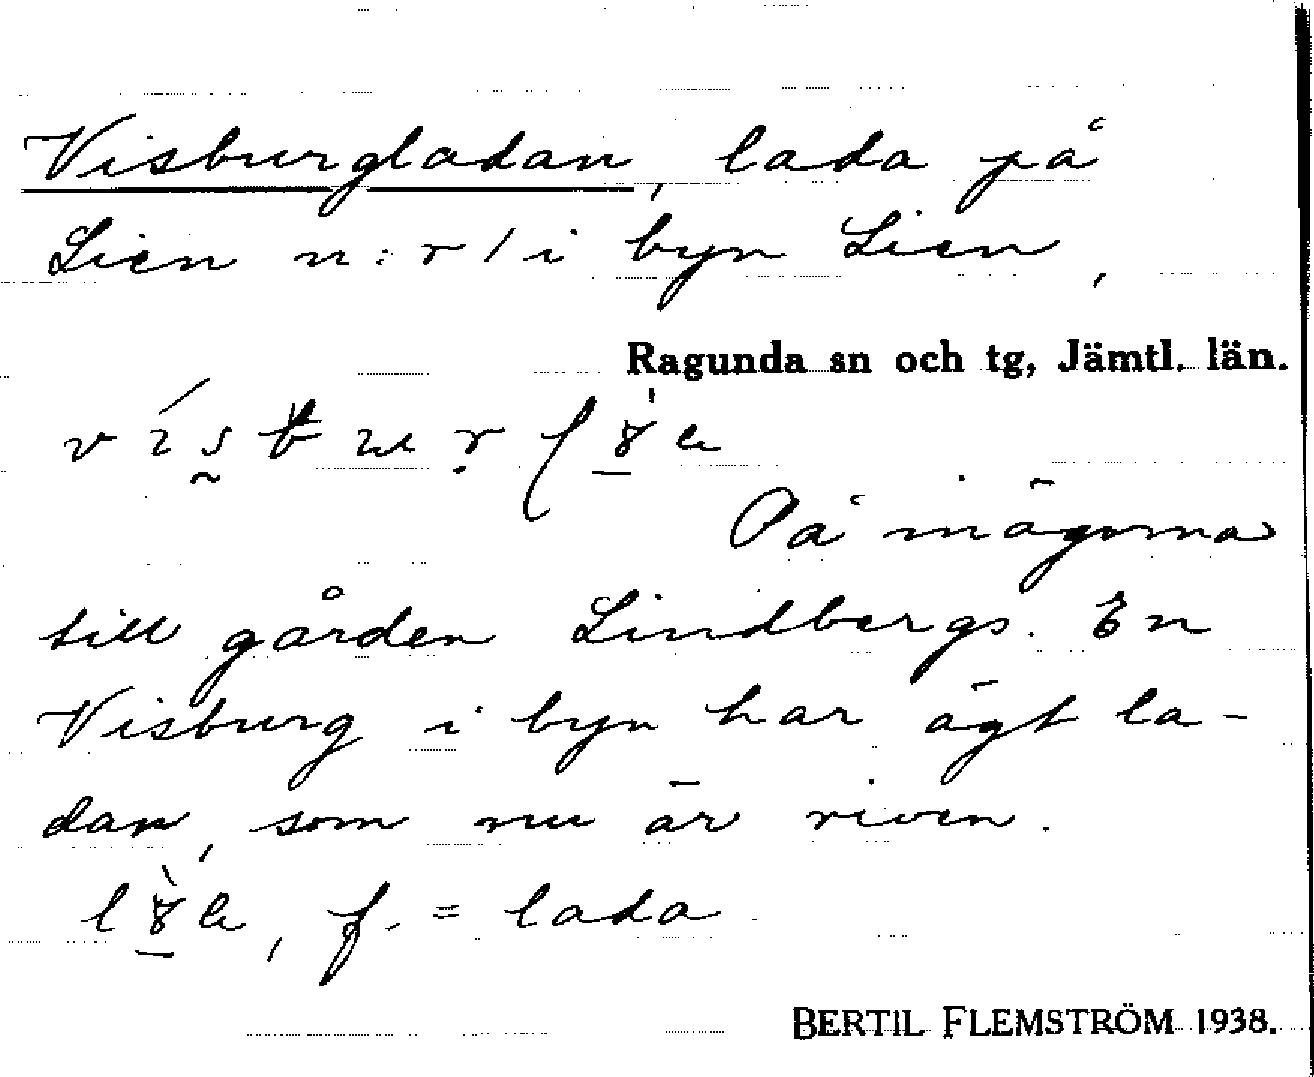 Visburgladan, lada på
Lien n:r 1 i byn Lien,
Ragunda sn och tg, Jämtl. län.
På inägorna
till gården Lindbergs. En
Visburg i byn har ägt la-
dan, som nu är riven.
f. = lada
BERTIL FLEMSTRÖM 1938.